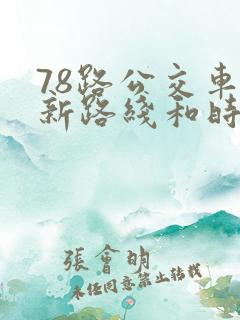 78路公交车
新路线和时
張會明
未经同意禁止转载